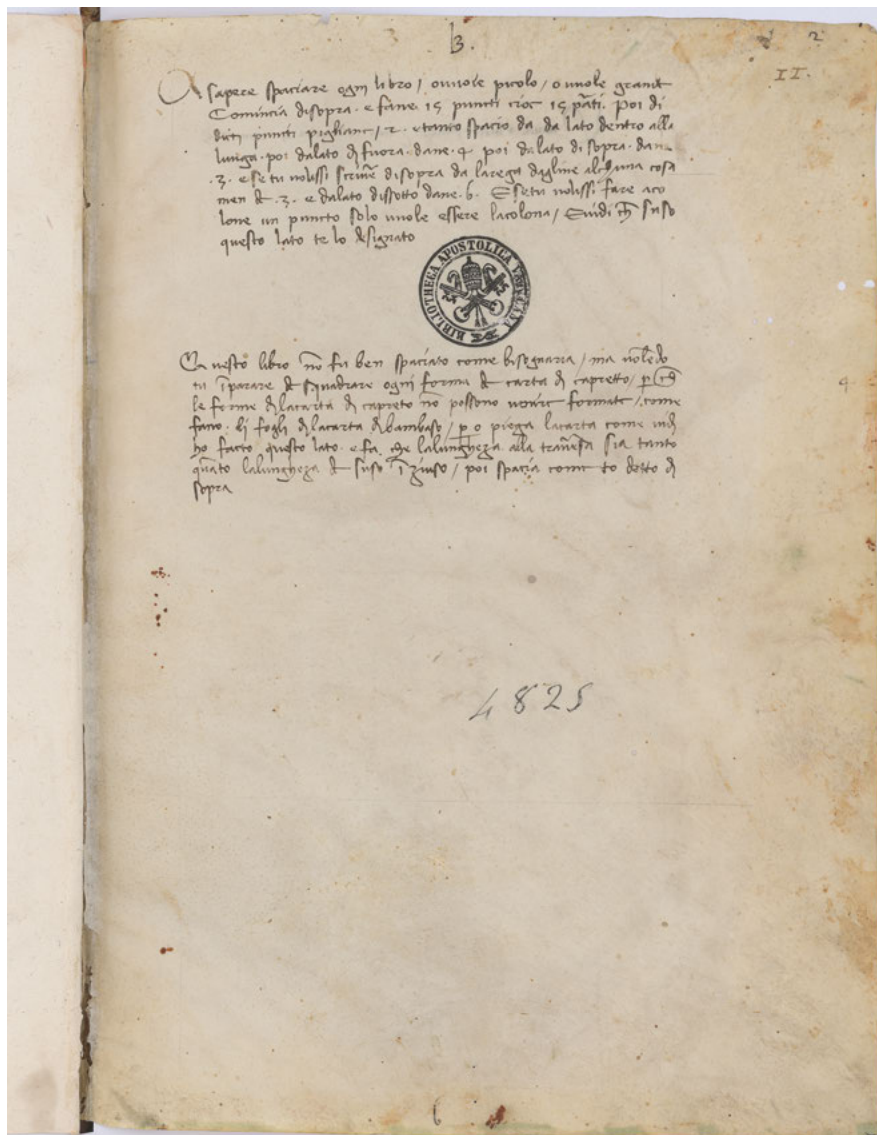 3.
2
II.
A sapere spaciare ogni libro / o vuole picolo / o vuole grande
Comincia disopra . e fane . 15 puncti cioe 15 parti . Poi di
dicti puncti pigliane / 2 . e tanto spacio da da lato dentro alla
lunga . poi dalato di fuora . dane . 4 poi dalato di sopra . dane
.3. e se tu volissi scrivere disopra da la rega dagline alchuna cosa
men de .3. e dalato dissotto dane . 6 . E se tu volissi fare a co
lone un puncto solo vuole essere la colona / E vidi che suso
questo lato te lo designato
BIBLIOTHECA APOSTOLICA VATICANA
Questo libro no fu ben spaciato come bisognaria / ma volendo
tu iparare de squadrare ogni forma de carta di capretto / per che
le forme di la carta di capreto no possono venire formate / come
fano . li fogli di la carta di bambaso / per o piega la carta come vidi
ho facto questo lato . e fa . che la lungheza . alla traversa sia tanto
quato la lungheza de suso i giuso / poi spacia come to detto di
sopra
4
4825